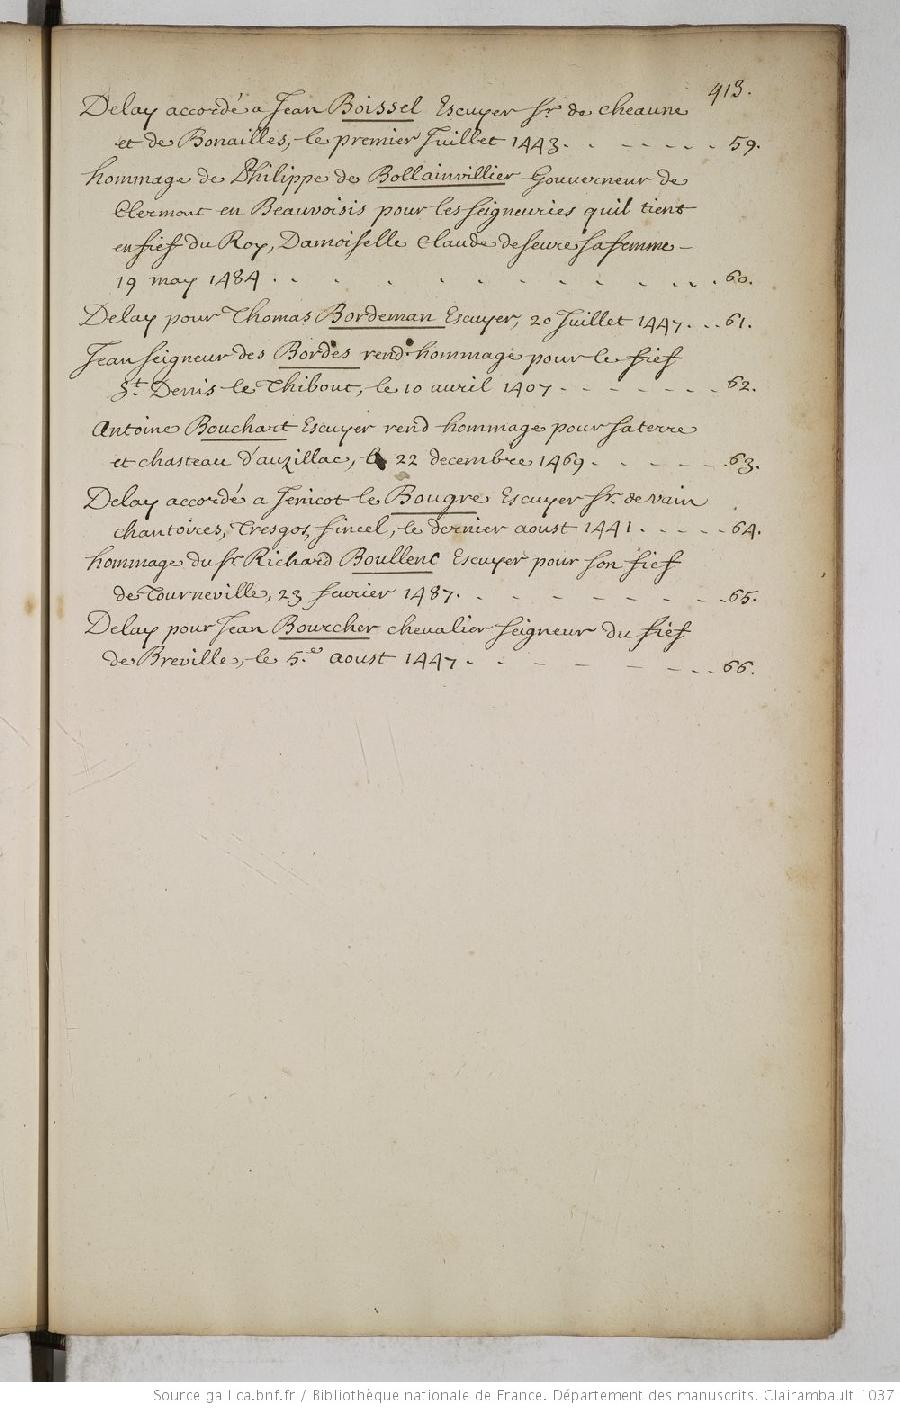 413.
Delay accordé a Jean Boissel Escuyer Sr. de Cheaune
et de Bonailles, le premier Juillet 1443. . - - - - . 59.
hommage de Philippe de Bollainvillier Gouverneur de
Clermont en Beauvoisis pour les seigneuries quil tient
en fief du Roy, Damoiselle Claude de seure sa femme -
19 may 1484 . . . . . . . . . . . . . 60.
Delay pour Thomas Bordeman Escuyer, 20 Juillet 1447. . . 61.
Jean seigneur des Bordes rend hommage pour le fief
St. Denis le Thibout, le 10 auril 1407 - - - - - - . . 62.
Antoine Bouchart Escuyer rend hommage pour sa terre
et chasteau d'auzillac, le 22 decembre 1469 . . - - - . 63.
Delay accordé a Jenicot le Bougre Escuyer Sr. de vain
chantoires, Tresgos, fincel, le dernier aoust 1441 . - - - - 64.
hommage du Sr. Richard Boullenc Escuyer pour son fief
de Tourneville, 23 feurier 1487. . - - - - - - . 65.
Delay pour Jean Bourcher chevalier seigneur du fief
de Breville, le 5.e aoust 1447 - . - - - - - . . 66.
Source gallica.bnf.fr / Bibliothèque nationale de France. Département des manuscrits. Clairambault 1037